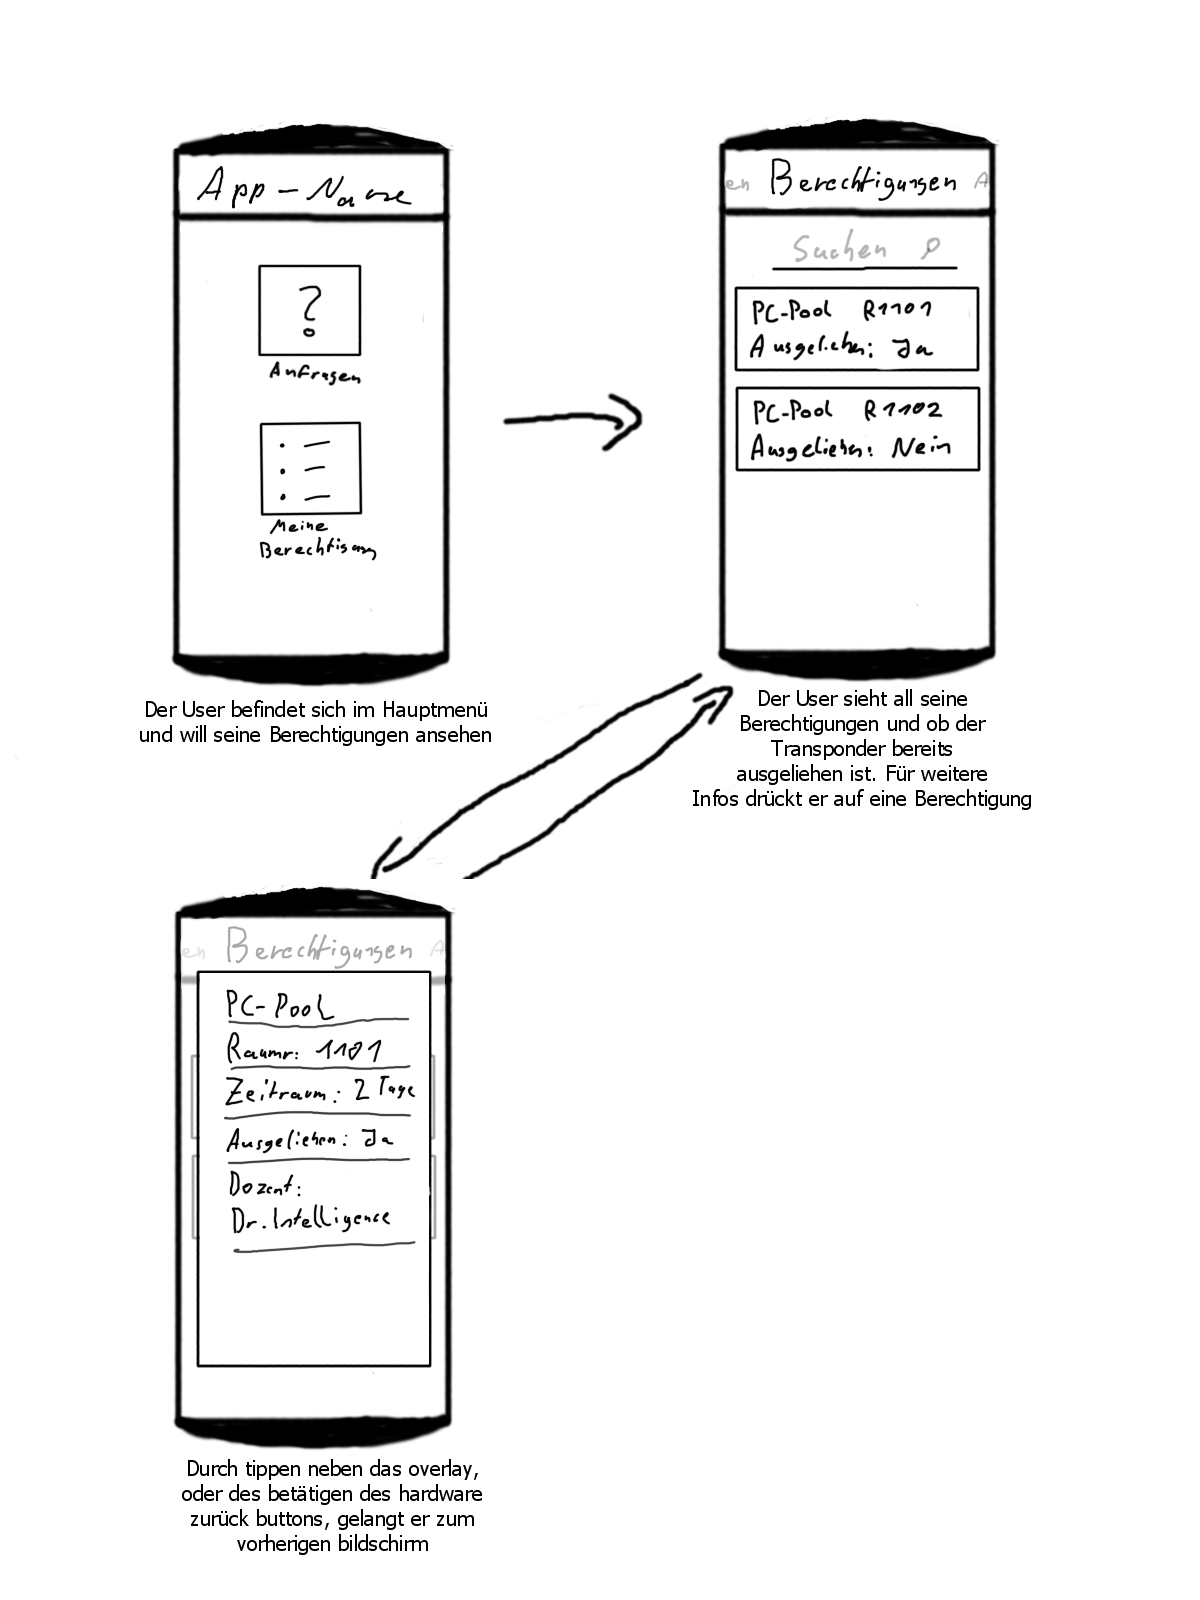 App - Name
?
Anfragen
Meine
Berechtigung
Der User befindet sich im Hauptmenü
und will seine Berechtigungen ansehen
en Berechtigungen A
Suchen
PC-Pool R1101
Ausgeliehen: Ja
PC-Pool R1102
Ausgeliehen: Nein
Der User sieht all seine
Berechtigungen und ob der
Transponder bereits
ausgeliehen ist. Für weitere
Infos drückt er auf eine Berechtigung
en Berechtigungen A
PC-Pool
Raumr: 1101
Zeitraum: 2 Tage
Ausgeliehen: Ja
Dozent:
Dr. Intelligence
Durch tippen neben das overlay,
oder des betätigen des hardware
zurück buttons, gelangt er zum
vorherigen bildschirm